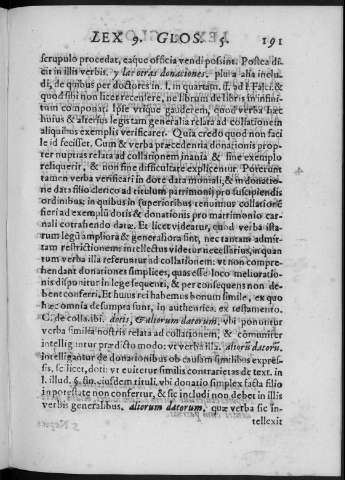 LEX 9. GLOS. 5. 191
scrupulo procedat, eaque officia vendi possint. Postea di
cit in illis verbis. y las otras donaciones. plura alia inclu
di, de quibus per doctores in. l. in quartam. ff. ad l. Falci. &
quod sibi non licet recensere, ne librum de libris in infini-
tum componat. Ipse vtique gauderem, quod verba hæc
huius & alterius legis tam generalia relata ad collationem
aliquibus exemplis verificaret. Quia credo quod non faci
le id fecisset. Cum & verba præcedentia donationis prop-
ter nuptias relata ad collationem inania & sine exemplo
reliquerit, & non sine difficultate explicentur. Poterunt
tamen verba verificari in dote data moniali, & in donatio-
ne data filio clerico ad titulum patrimonij pro suscipiendis
ordinibus: in quibus in superioribus tenuimus collationē
fieri ad exemplū dotis & donationis pro matrimonio car-
nali contrahendo datæ. Et licet videatur, quod verba ista-
rum legū ampliora & generaliora sint, nec tantam admit-
tam restrictionem intellectus videtur necessarius, in quan
tum verba illa referuntur ad collationem: vt non compre-
hendant donationes simplices, quas esse loco melioratio-
nis disponitur in lege sequenti, & per consequens non de-
bent conferri. Et huius rei habemus bonum simile, ex quo
hæc omnia desumpta sunt, in authentica, ex testamento.
C. de colla. ibi. dotis, & aliorum datorum. vbi ponuntur
verba similia nostris relata ad collationem, & comuniter
intelliguntur prædicto modo: vt verba illa. aliorū datorū.
intelligantur de donationibus ob causam similibus expres-
sis, scilicet, doti: vt euitetur similis contrarietas de text. in
l. illud. §. fin. eiusdem tituli. vbi donatio simplex facta filio
in potestate non confertur, & sic includi non debet in illis
verbis generalibus. aliorum datorum. quæ verba sic in-
tellexit